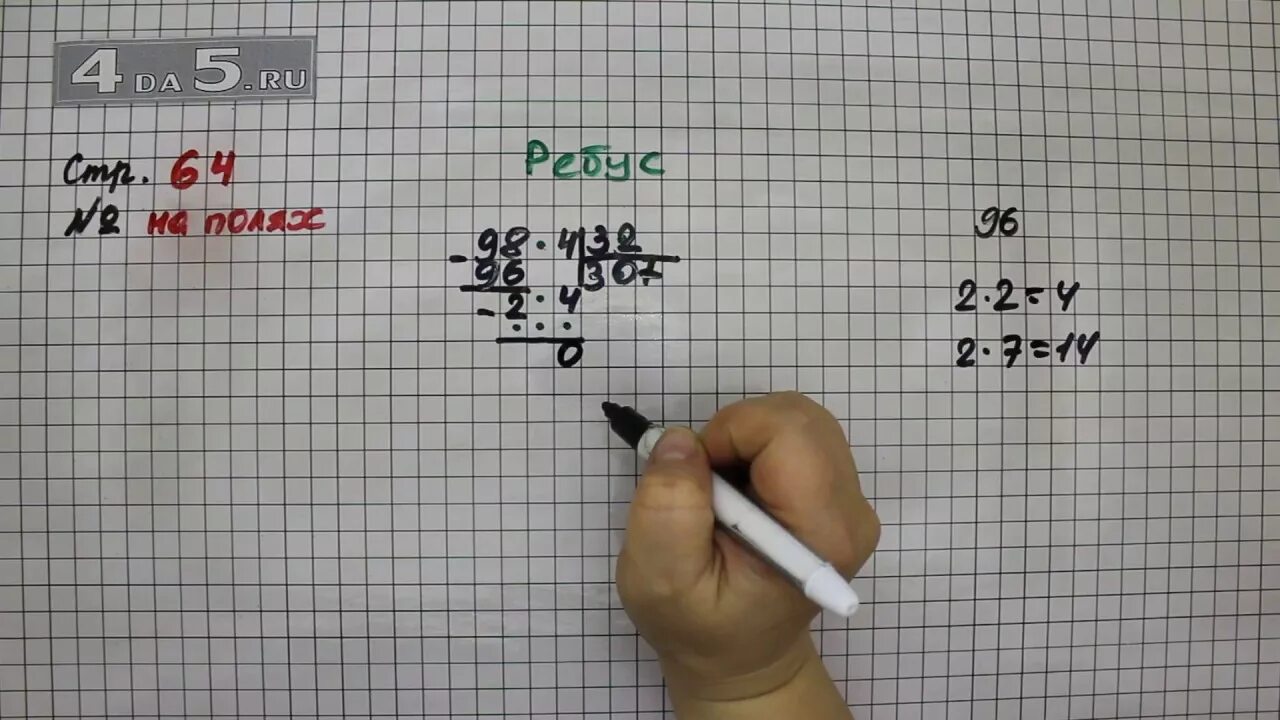 4DA5.RU
Стр. 64
№2 на полях
Ребус
98·4|32
-96 |307
-2·4
···
0
96
2·2=4
2·7=14